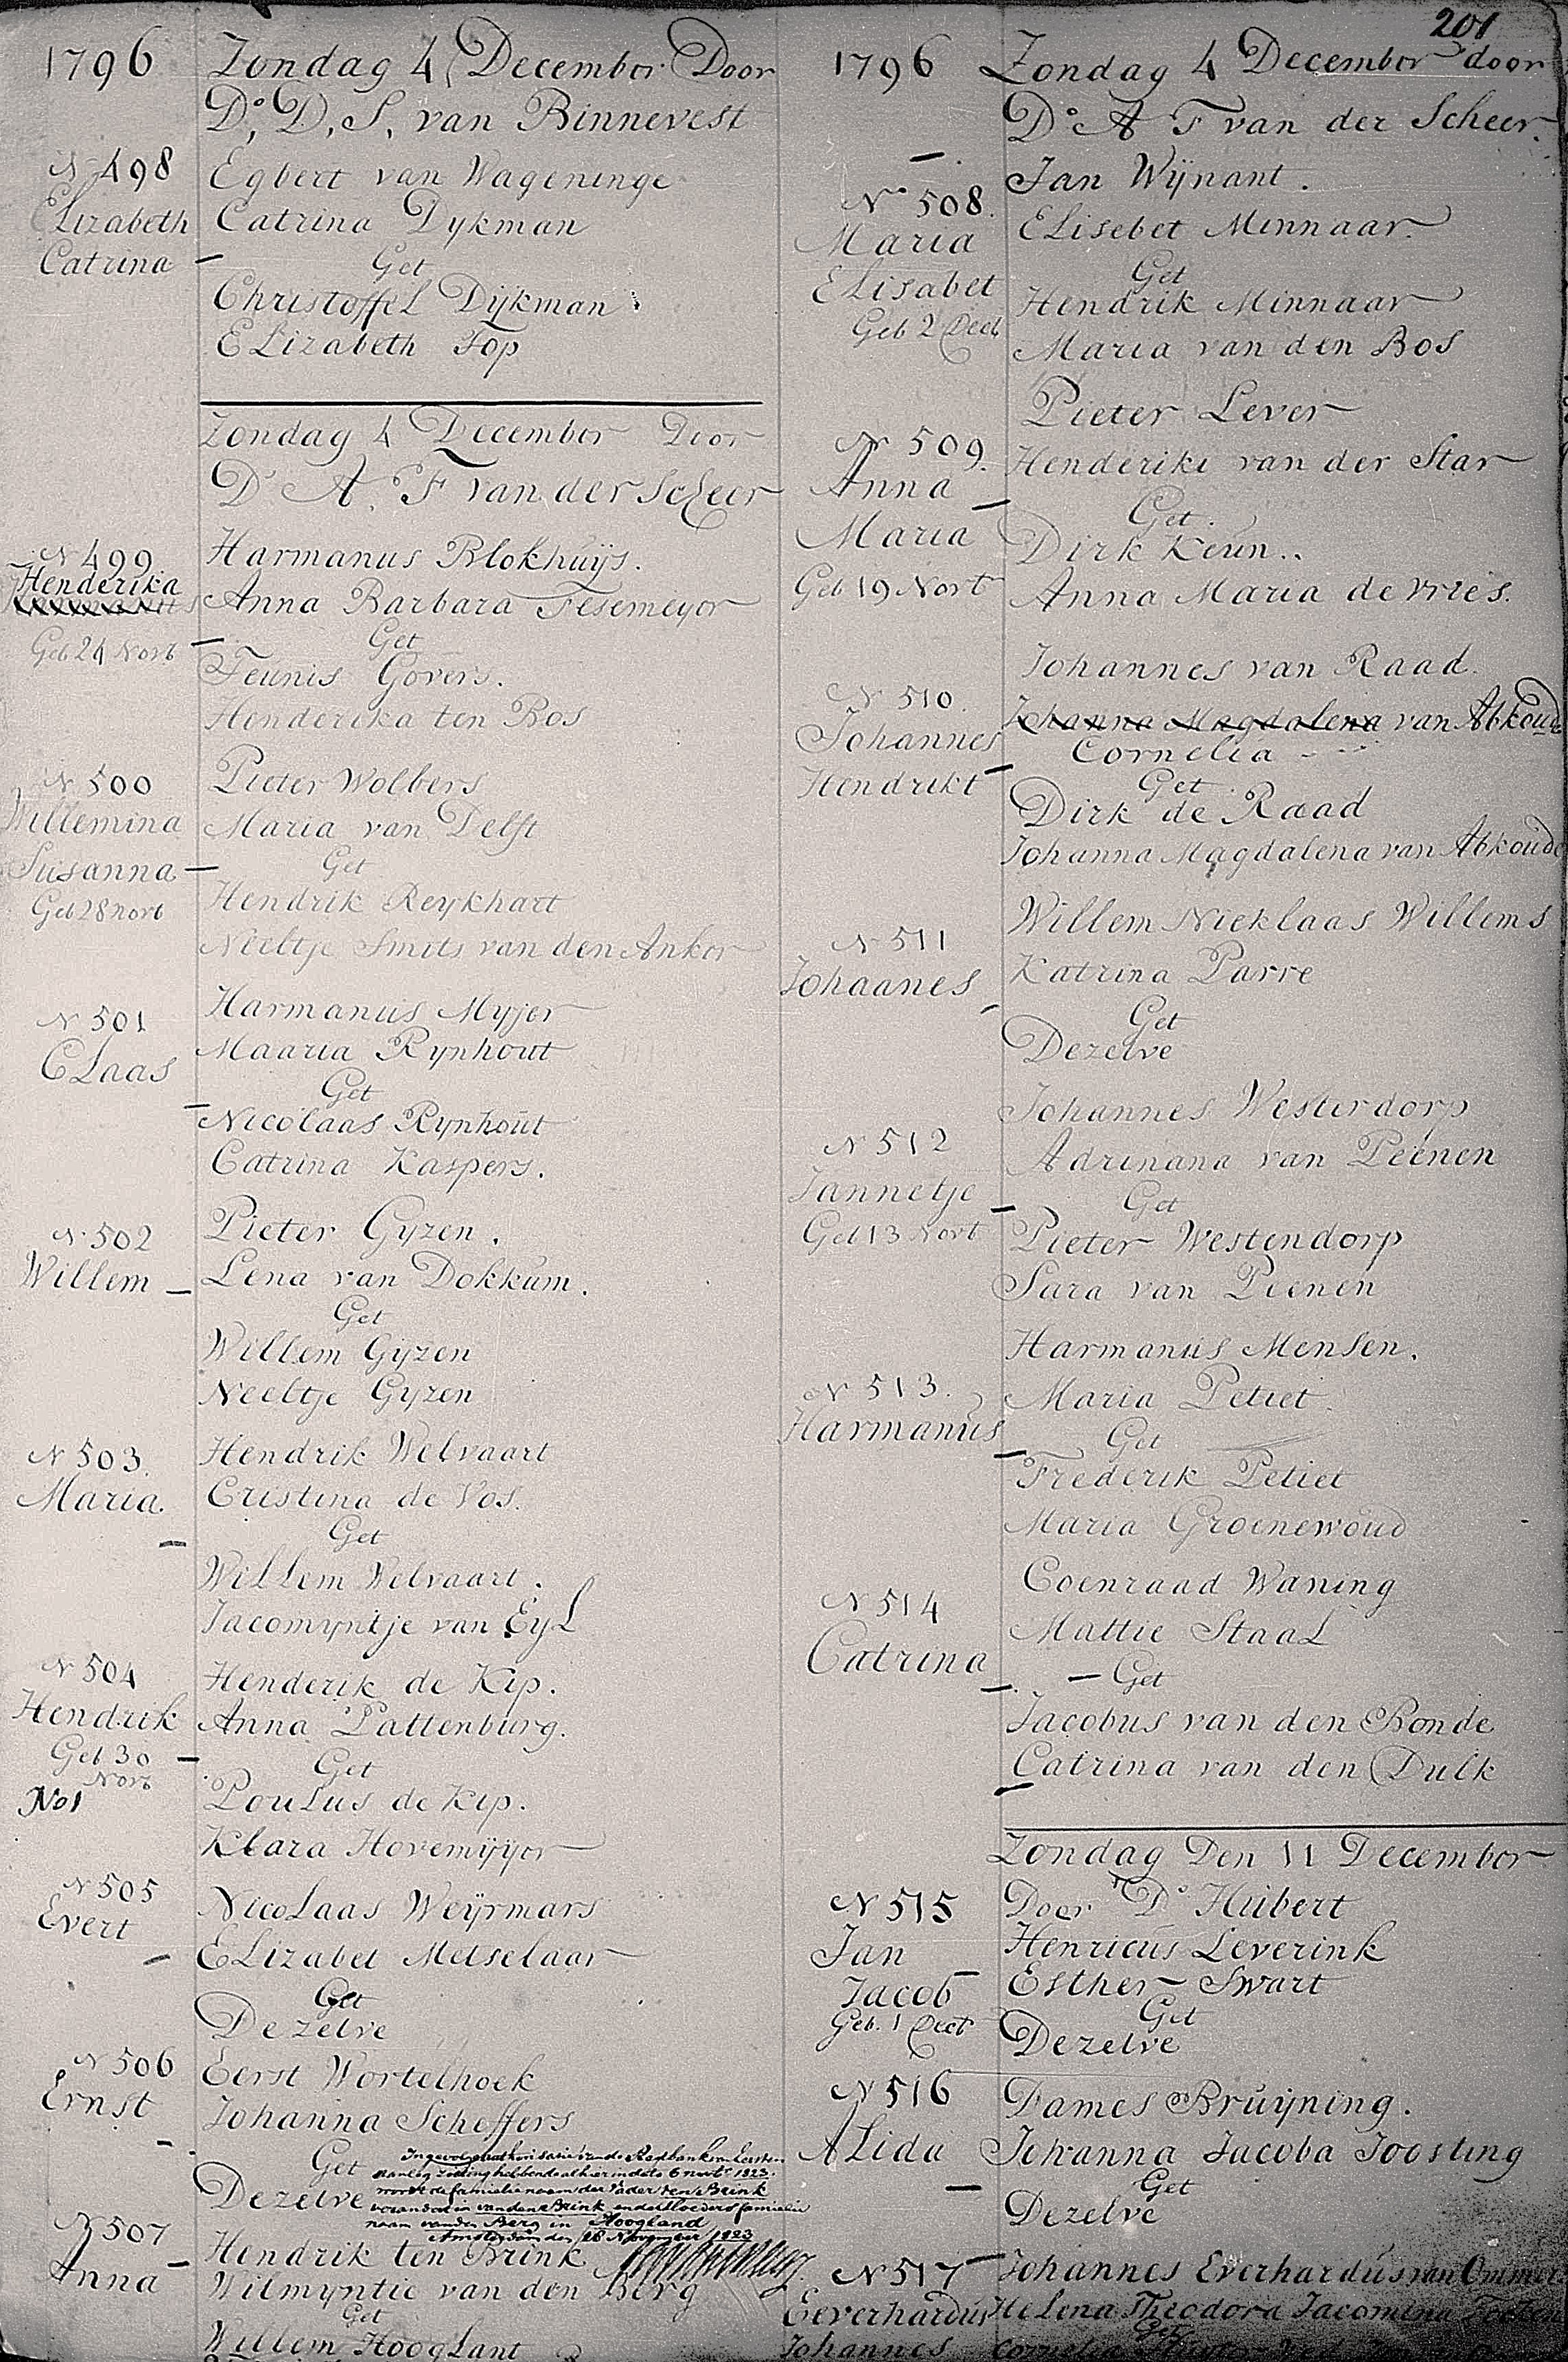 201
1796
Zondag 4 December Door
D°, D, S, van Binnevest
N 498
Elizabeth
Catrina
Egbert van Wageninge
Catrina Dykman
Get
Christoffel Dijkman
Elizabeth Top
Zondag 4 December Door
D° A. F van der Scheer
N 499
Henderika
Geb 24 Novb
Harmanus Blokhuijs.
Anna Barbara Fesemeyor
Get
Teunis Govers.
Henderika ten Bos
N 500
Willemina
Susanna
Geb 28 Novb
Pieter Wolbers
Maria van Delft
Get
Hendrik Reykhart
Neeltje Smits van den Anker
N 501
Claas
Harmanus Myjer
Maaria Rynhout
Get
Nicolaas Rynhout
Catrina Kaspers.
N 502
Willem
Pieter Gyzen.
Lena van Dokkum.
Get
Willem Gyzen
Neeltje Gyzen
N 503.
Maria.
Hendrik Welvaart
Cristina de Vos.
Get
Willem Welvaart.
Jacomyntje van Eyl
N 504
Hendrik
Geb 30
Novb
No 1
Henderik de Kip.
Anna Pattenburg.
Get
Poulus de Kip.
Klara Hovemyjor
N 505
Evert
Nicolaas Weyrmars
Elizabet Metselaar
Get
Dezelve
N 506
Ernst
Eerst Wortelhoek
Johanna Scheffers
Get
Dezelve
Ingevolge authorisatie van de Regtbank van Eersten
aanleg zitting hebbende alhier in dato 6 novbr 1823.
wordt de familie naam der Vader ten Brink
verandert in van den Brink en der Moeders familie
naam van den Berg in Hoogland
Amsterdam den 26 November 1823
N 507
Anna
Hendrik ten Brink
Wilmyntie van den Berg
Get
Willem Hooglant
1796
Zondag 4 December door
D° A F van der Scheer.
N° 508.
Maria
Elisabet
Geb 2 Decb
Jan Wynant.
Elisebet Minnaar.
Get
Hendrik Minnaar
Maria van den Bos
N 509.
Anna
Maria
Geb 19 Novb
Pieter Lever
Henderike van der Star
Get.
Dirk Keun..
Anna Maria de Vries.
N 510.
Johannes
Hendrikt
Johannes van Raad.
Johanna Magdalena van Abkoude
Cornelia
Get
Dirk de Raad
Johanna Magdalena van Abkoude
N 511
Johaanes
Willem Nieklaas Willems
Katrina Parre
Get
Dezelve
N 512
Jannetje
Geb 13 Novb
Johannes Westerdorp
Adrinana van Peenen
Get
Pieter Westendorp
Sara van Peenen
N 513.
Harmanus
Harmanus Mensen.
Maria Petiet.
Get
Frederik Petiet
Maria Groenewoud
N 514
Catrina
Coenraad Waning
Mattie Staal
Get
Jacobus van den Bonde
Catrina van den Dulk
Zondag Den 11 December
Door D° Hubert
N 515
Jan
Jacob
Geb. 1 Decb
Henricus Leverink
Esther Swart
Get
Dezelve
N 516
Alida
Dames Bruyning.
Johanna Jacoba Joosting
Get
Dezelve
N 517
Eeverhardus
Johannes
Johannes Everhardus van Ommer
Helena Theodora Jacomina
Get
Cornelia